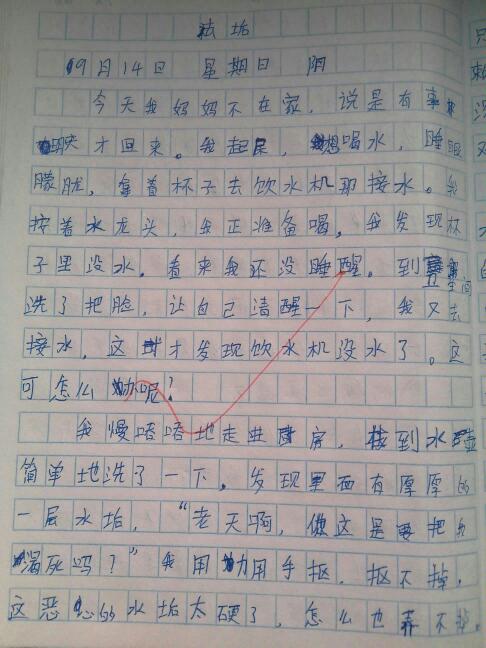 祛垢
9月14日 星期日 阴
今天我妈妈不在家，说是有事
明天才回来。我起早，想喝水，睡眼
朦胧，拿着杯子去饮水机那接水。我
按着水龙头，我正准备喝，我发现杯
子里没水。看来我还没睡醒。到
洗了把脸，让自己清醒一下，我又去
接水，这时才发现饮水机没水了。这
可怎么办呢？
我慢唔唔地走进厨房，找到水壶
简单地洗了一下。发现里面有厚厚的
一层水垢，“老天啊，你这是要把我
渴死吗？”我用力用手抠，抠不掉，
这恶心的水垢太硬了，怎么也弄不掉，